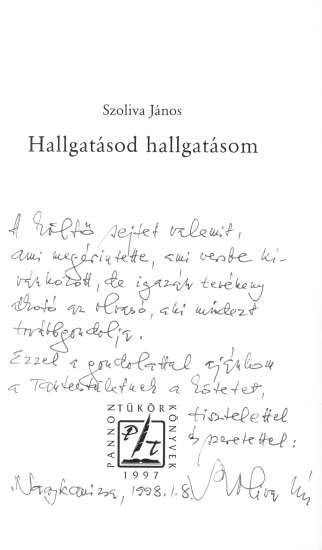 Szoliva János
Hallgatásod hallgatásom
A költő sejtet valamit,
ami megérintette, ami versbe ki-
vánkozott, de igazán tevékeny
alkotó az olvasó, aki mindezt
továbbgondolja.
Ezzel a gondolattal ajánlom
a Tantestületnek a kötetet,
tisztelettel
és szeretettel:
PANNON TÜKÖR KÖNYVEK
PT
1997
Nagykanizsa, 1998. 1. 8. Szoliva János